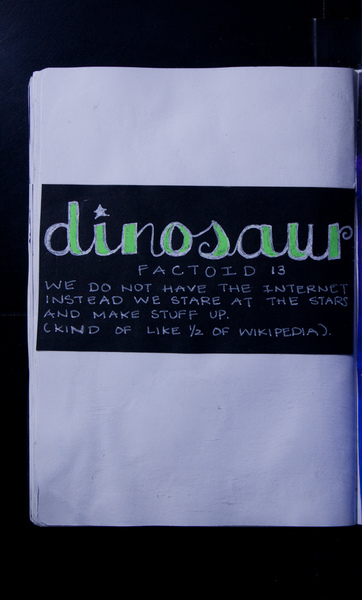 dinosaur
FACTOID 13
WE DO NOT HAVE THE INTERNET
INSTEAD WE STARE AT THE STARS
AND MAKE STUFF UP.
(KIND OF LIKE ½ OF WIKIPEDIA).